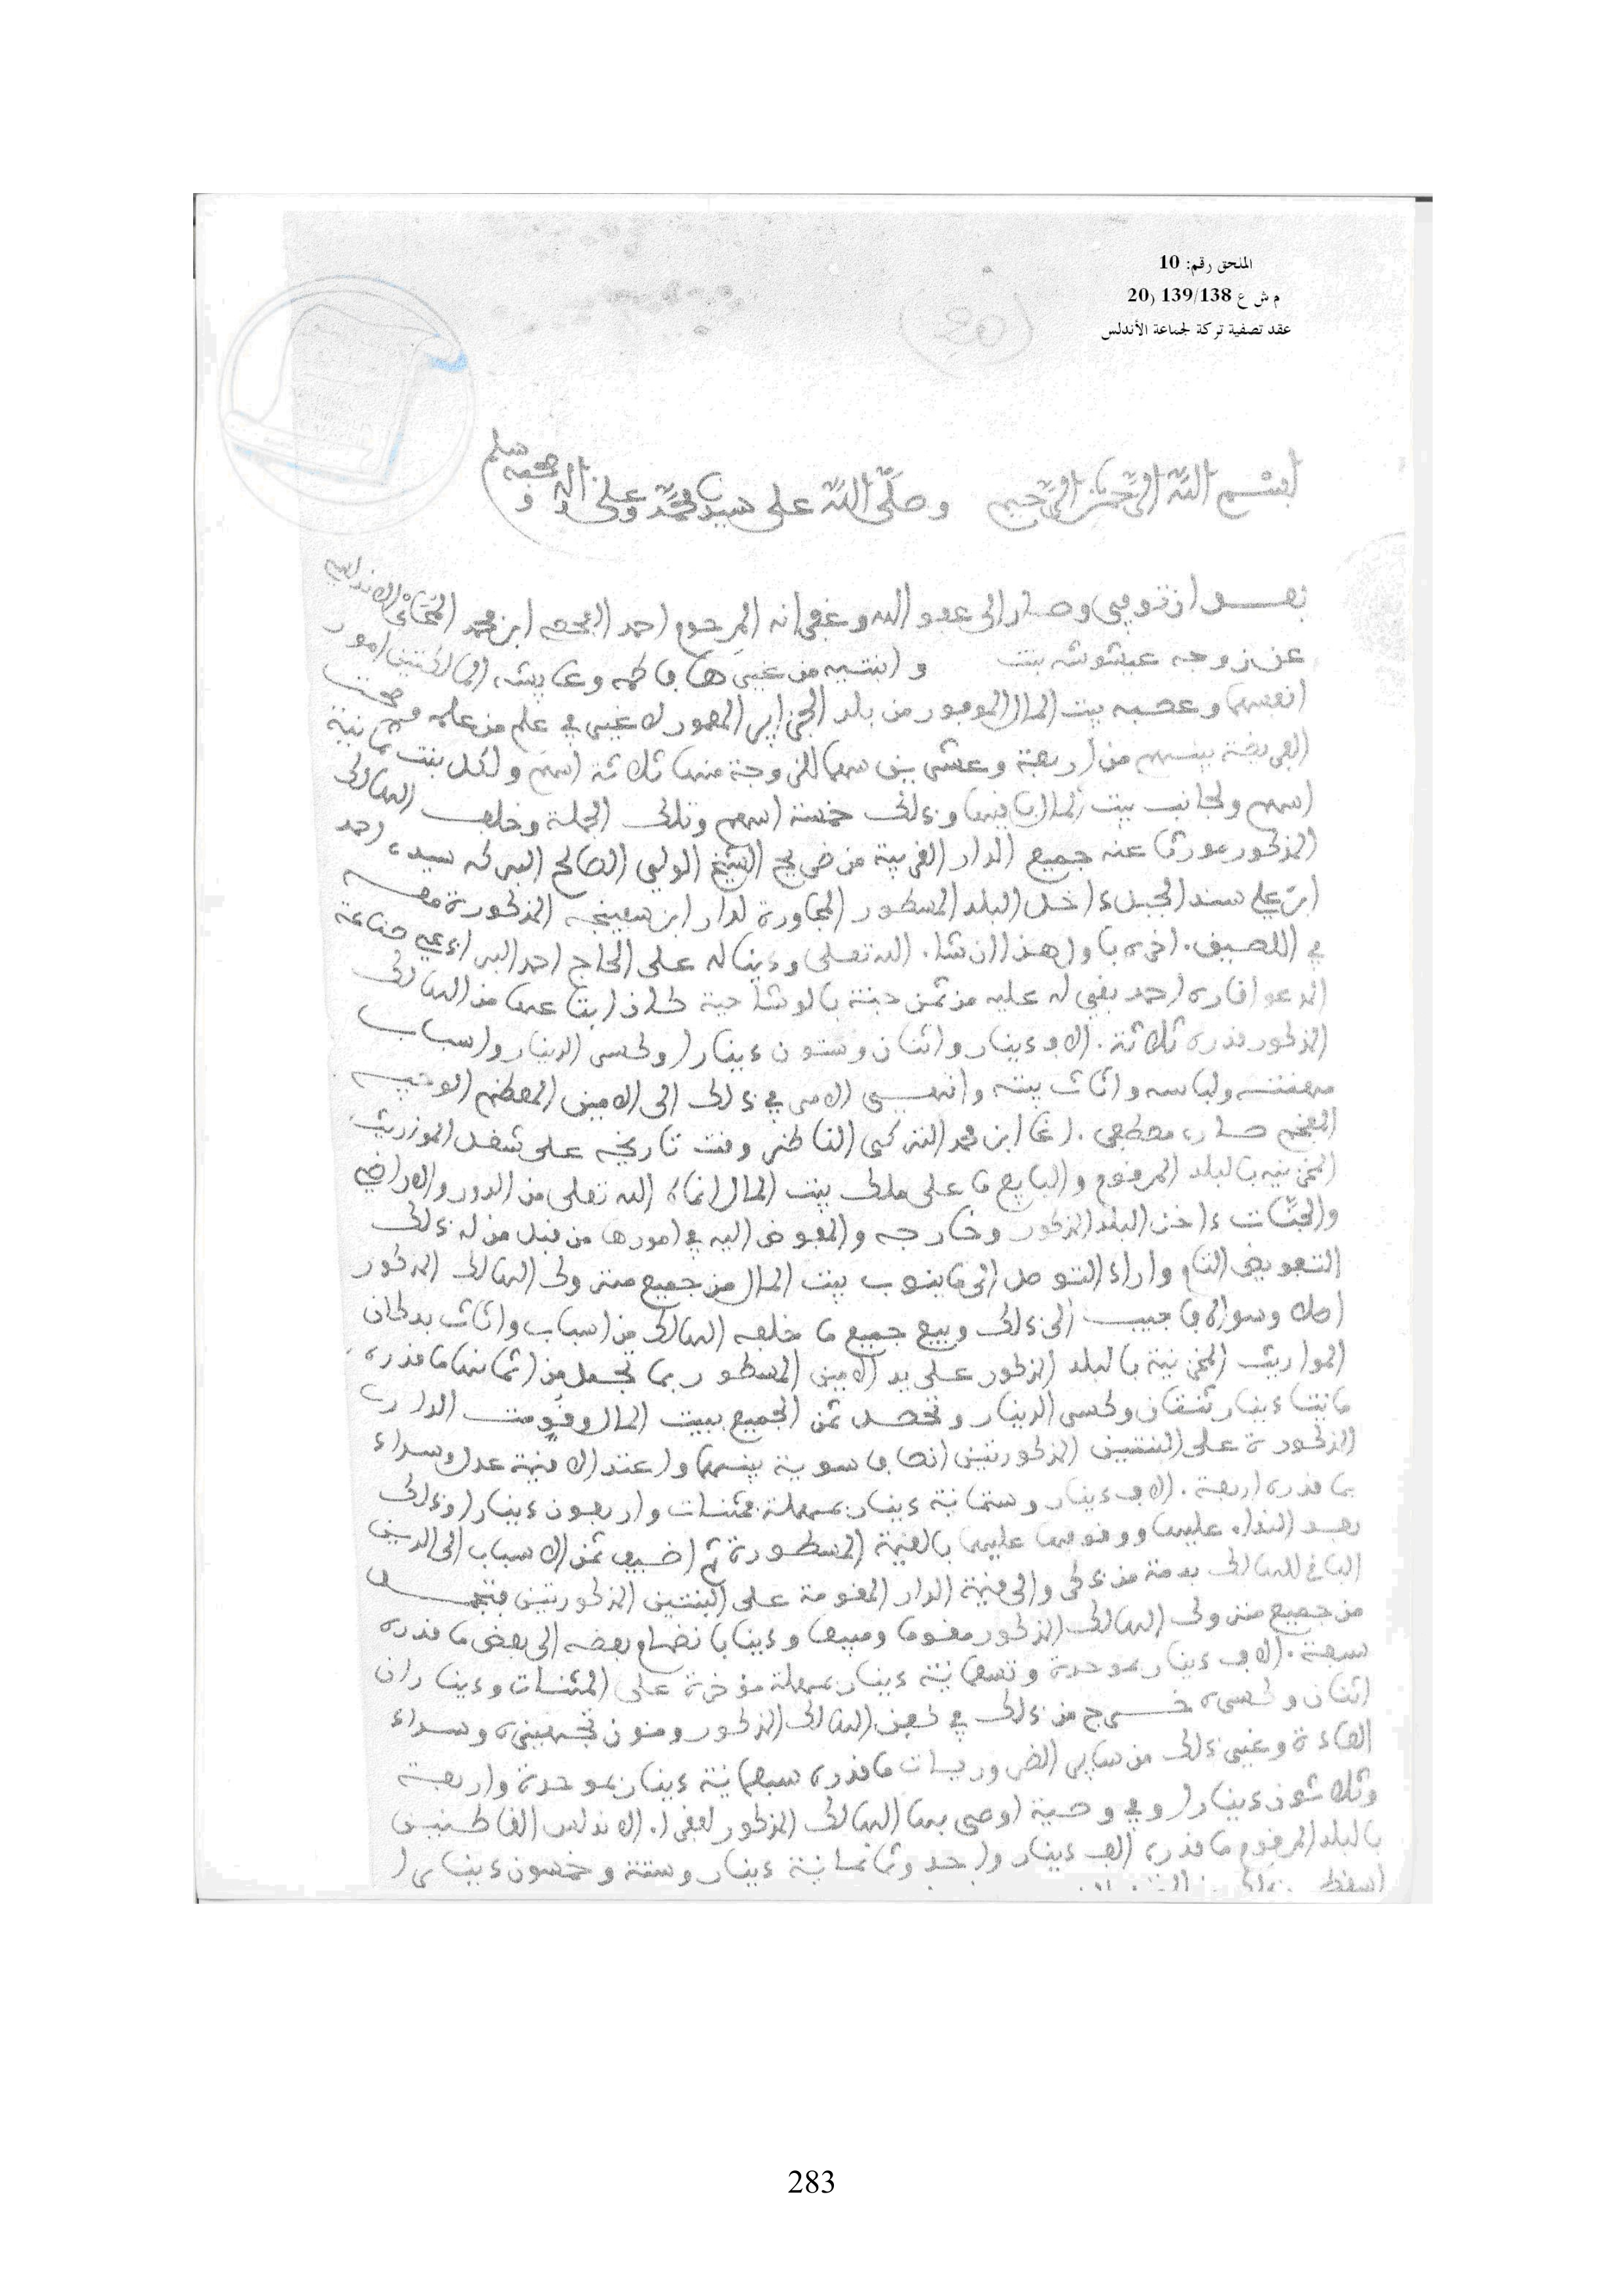 الملحق رقم: 10
م ش ع 139/138 (20
عقد تصفية تركة لجماعة الأندلس
(20)
بسم الله الرحمن الرحيم وصلى الله على سيدنا محمد وعلى آله وصحبه وسلم
بعد ان توفي وصار الى عفو الله وغفرانه المرحوم احمد ابن محمد الاندلسي
عن زوجه عيشوشه بنت و ابنتيه من غيرها فاطمه وعايشه المالكتين امور
انفسهما وعصبه بيت المال الموفور من بلد الجزاير المعمور لا غير في علم من علمه وصحت
الفريضة بينهم من اربعة وعشرين سهما للزوجة منها ثلاثة اسهم ولكل بنت ثمانية
اسهم ولجانب بيت المال باقيها وذلك خمسة اسهم وتلك الجملة وخلف الهالك
المذكور موروثا عنه جميع الدار القريبة من ضريح الشيخ الولي الصالح البركه سيد احمد
ابن علي سند الجبل داخل البلد المسطور المجاورة لدار ابن المذكورة معه
في ان شاء الله تعلى ودينا له على الحاج احمد صناعة
المدعو احمد بقي له عليه من ثمن جنة كان ابتاعها من الهالك
المذكور قدره ثلاثة الاف دينار واثنان وستون دينارا وكسر الدينار واسباب
مهنته ولباسه واثاث بيته وانهى الامر في ذلك الى الامين المعظم الوجيه
المفخم مصطفى اغا ابن محمد التركي الناظر وقت تاريخه على شغل المواريث
المخزنيه بالبلد المرقوم والبايع ما على ملك بيت المال انماه الله تعلى من الدور والاراضي
والجنات داخل البلد المذكور وخارجه والمفوض اليه في امورها من قبل من له ذلك
التفويض التام واراد التوصل الى ما ينوب بيت المال من جميع متروك الهالك المذكور
وسواله فاجيب الى ذلك وبيع جميع ما خلفه الهالك من اسباب واثاث بدكان
المواريث المخزنية بالبلد المذكور على يد الامين المسطور بما تجمل من اثمانها ما قدره
مايتا دينار ثنتان وكسر الدينار وتحصل ثمن الجميع ببيت المال وقومت الدار
المذكورة على البنتين المذكورتين انصافا سوية بينهما واعتدالا قيمة عدل وسداد
بما قدره اربعة الاف دينار وستمائة دينار واربعون دينارا وذلك
بعد النداء عليها ووقوفها عليهما بالقيمة المسطورة ثم اضيف ثمن الاسباب الى الدين
الباقي للهالك بذمة من ذكر والى قيمة الدار المقومة على البنتين المذكورتين فتجمل
من جميع متروك الهالك المذكور مقوما ومبيعا ودينا بانضمام بعضه الى بعض ما قدره
سبعة الاف دينار بموحدة وتسعمائة دينار ودينار ان
اثنان وكسره خرج من ذلك في كفن الهالك المذكور ومون تجهيزه وسداد
العادة وغير ذلك من ساير الضروريات ما قدره سبعمائة دينار بموحدة واربعة
وثلاثون دينارا وفي وصية اوصى بها الهالك المذكور لفقراء الاندلس القاطنين
بالبلد المرقوم ما قدره الف دينار واحد وثمانمائة دينار وستة وخمسون دينارا
283